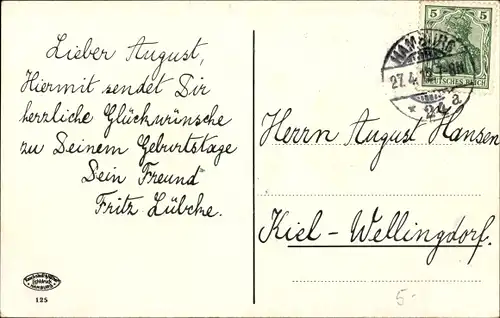 Lieber August,
Hiermit sendet Dir
herzliche Glückwünsche
zu Deinem Geburtstage
Dein Freund
Fritz Lübcke.
125
5 5
DEUTSCHES REICH
HAMBURG
27.4.
* 24 a
Herrn August Hansen
Kiel-Wellingdorf.
5.-